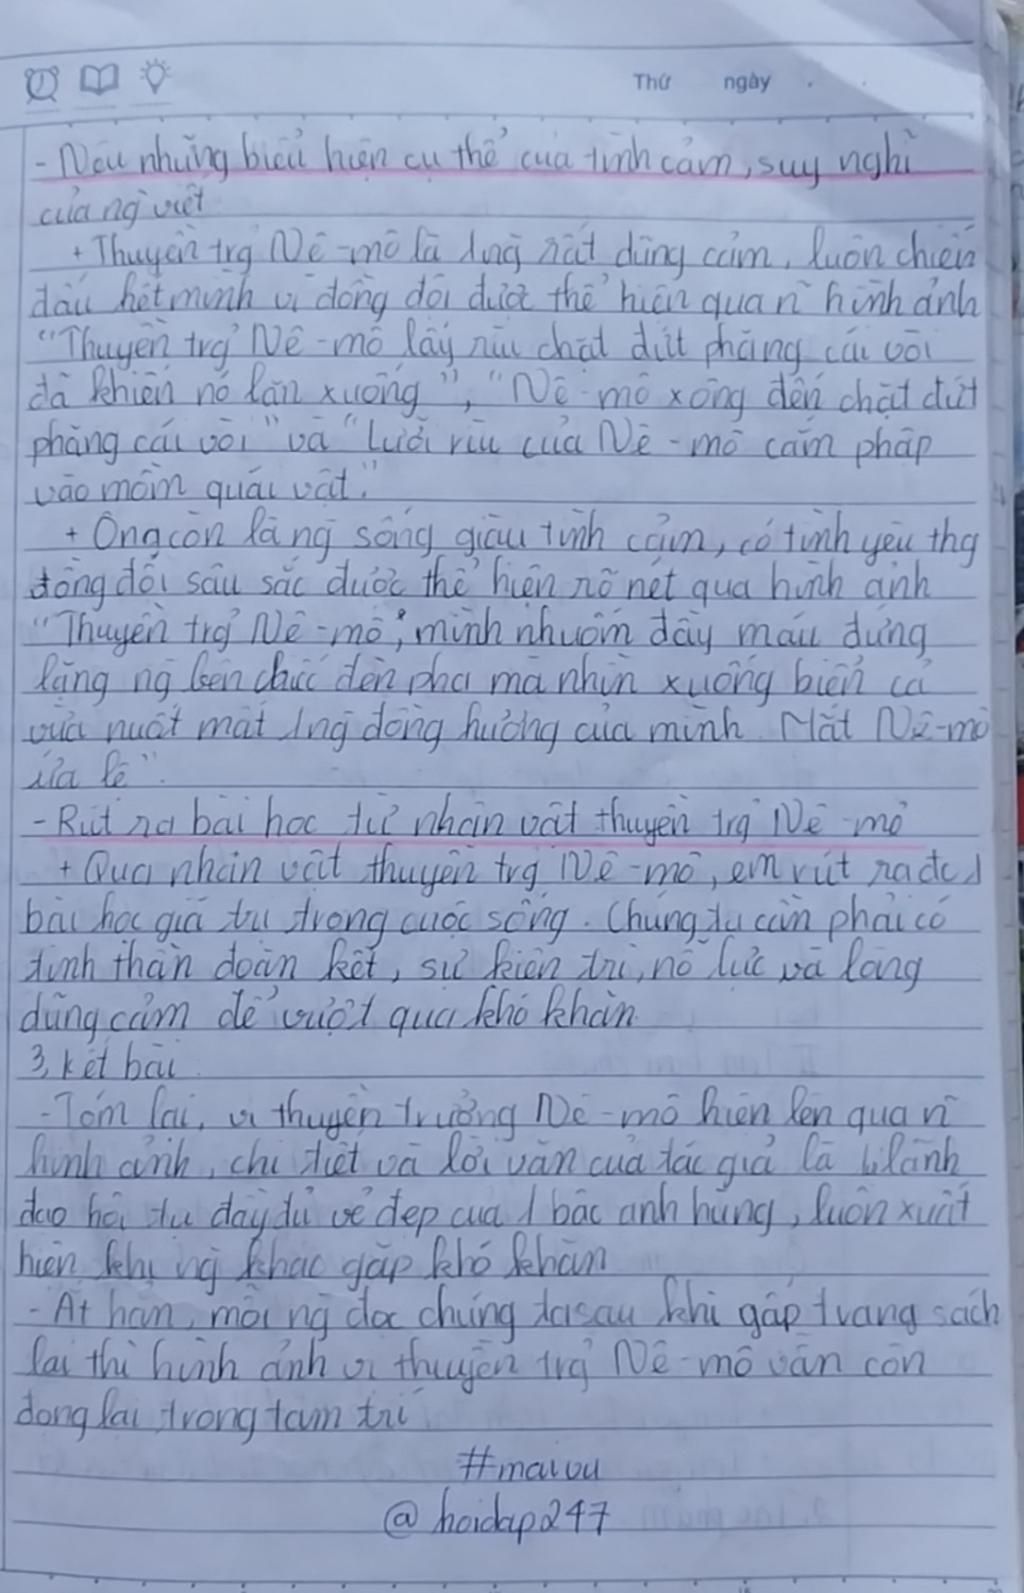 Thứ ngày
- Nêu những biểu hiện cụ thể của tình cảm, suy nghĩ
của ng viết
+ Thuyền trg Nê-mô là 1 ng rất dũng cảm, luôn chiến
đấu hết mình vì đồng đội được thể hiện qua n~ hình ảnh
"Thuyền trg Nê-mô lấy rìu chặt đứt phăng cái vòi
đã khiến nó lăn xuống", "Nê-mô xông đến chặt đứt
phăng cái vòi" và "Lưỡi rìu của Nê-mô cắm phập
vào mồm quái vật."
+ Ông còn là ng sống giàu tình cảm, có tình yêu thg
đồng đội sâu sắc được thể hiện rõ nét qua hình ảnh
"Thuyền trg Nê-mô, mình nhuốm đầy máu đứng
lặng ng bên chiếc đèn pha mà nhìn xuống biển cả
vừa nuốt mất 1 ng đồng hương của mình. Mắt Nê-mô
ứa lệ".
- Rút ra bài học từ nhân vật thuyền trg Nê-mô
+ Qua nhân vật thuyền trg Nê-mô, em rút ra đc 1
bài học giá trị trong cuộc sống. Chúng ta cần phải có
tinh thần đoàn kết, sự kiên trì, nỗ lực và lòng
dũng cảm để vượt qua khó khăn.
3, Kết bài
- Tóm lại, vị thuyền trưởng Nê-mô hiện lên qua n~
hình ảnh, chi tiết và lời văn của tác giả là lãnh
đạo hội tụ đầy đủ vẻ đẹp của 1 bậc anh hùng, luôn xuất
hiện khi ng khác gặp khó khăn
- Ắt hẳn, mỗi ng đọc chúng ta sau khi gấp trang sách
lại thì hình ảnh vị thuyền trg Nê-mô vẫn còn
đọng lại trong tâm trí
#maivu
@hoidap247